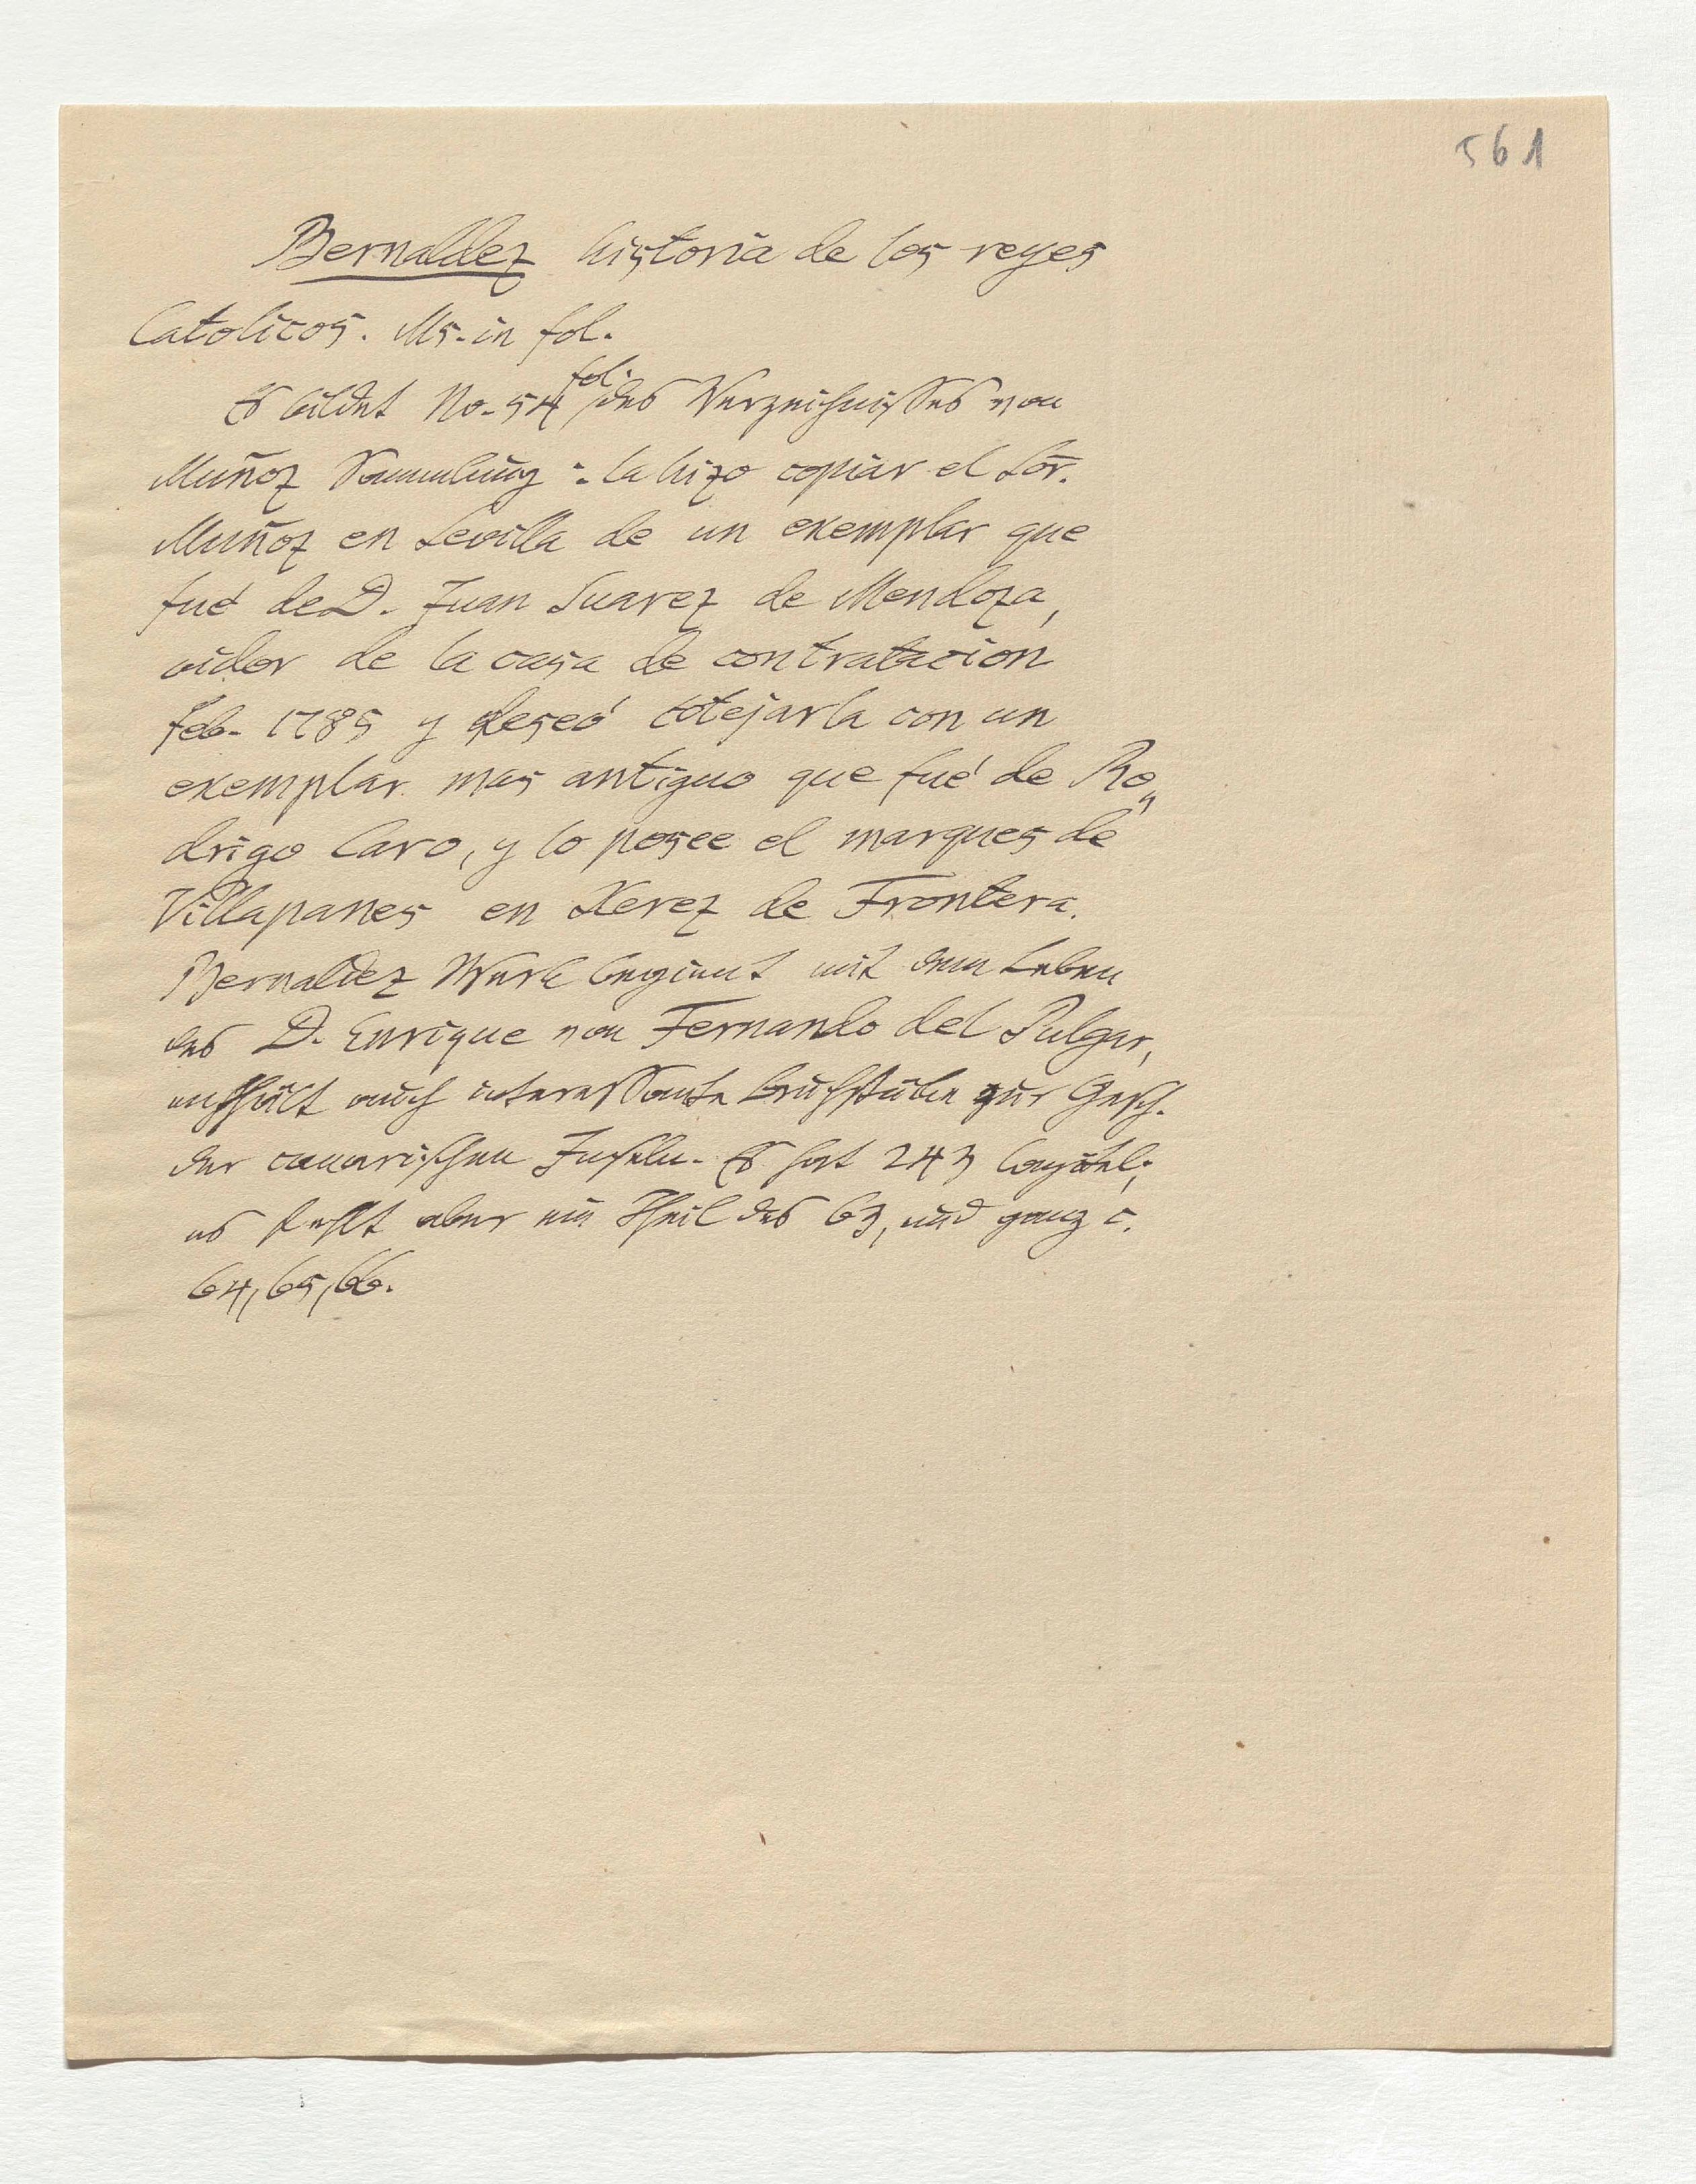 561
Bernaldez historia de los reyes
Catolicos. Ms. in fol.
Es bildet No. 54 fol. des Verzeichnisses von
Muñoz Sammlung: la hizo copiar el Sōr.
Muñoz en Sevilla de un exemplar que
fué de D. Juan Suarez de Mendoza,
oidor de la casa de contratacion
feb. 1785 y deseó cotejarla con un
exemplar mas antiguo que fué de Ro„
drigo Caro, y lo posee el marques de
Villapanes en Xerez de Frontera.
Bernaldez Werk beginnt mit dem Leben
des D. Enrique von Fernando del Pulgar,
enthält auch interessante Bruchstücke zur Gesch.
der canarischen Inseln. Es hat 243 Capitel;
es fehlt aber ein Theil des 63, und ganz c.
64, 65, 66.